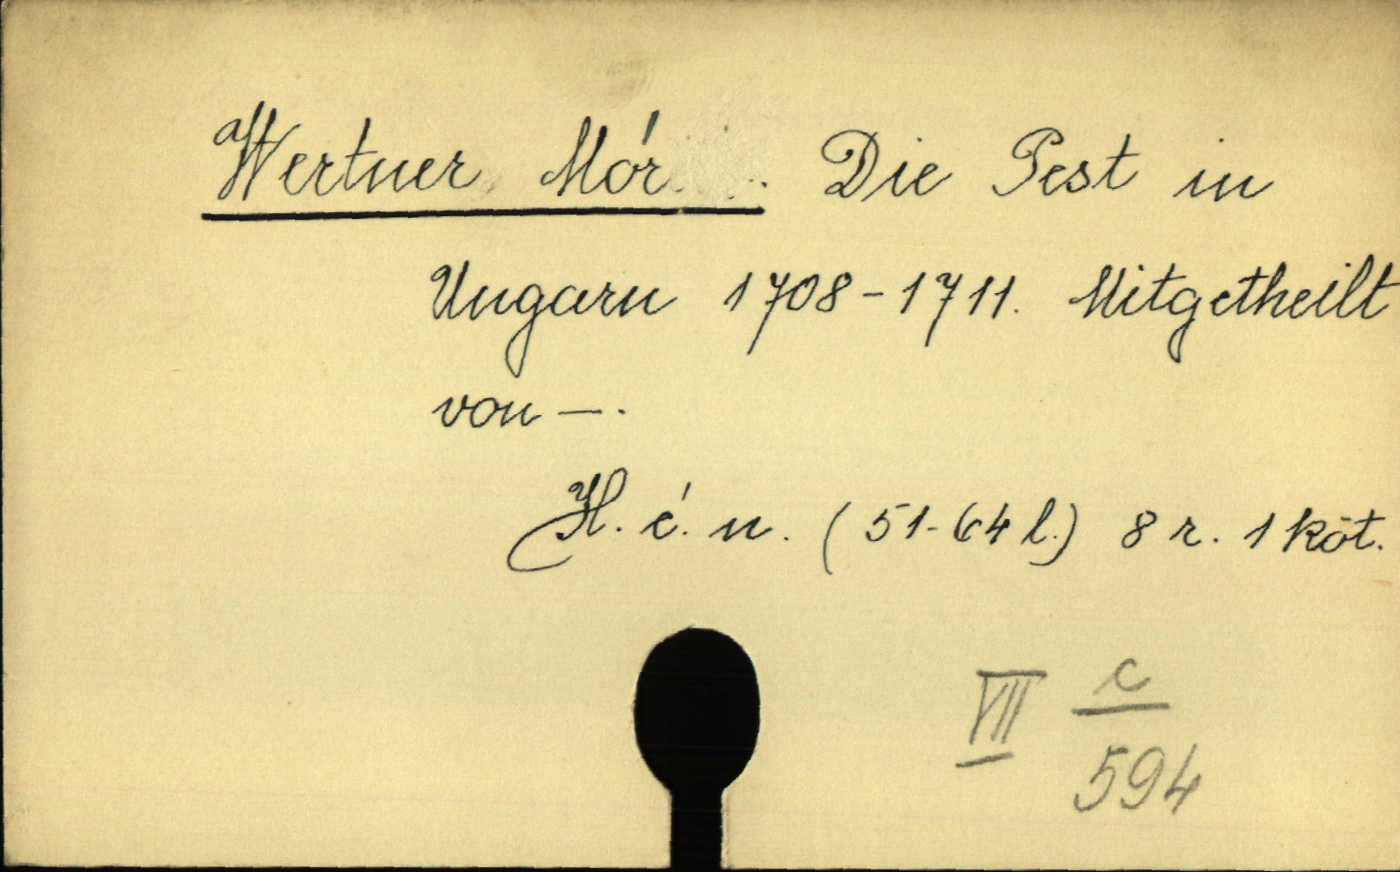 Wertner Mór. Die Pest in
Ungarn 1708-1711. Mitgetheilt
von —.
H. é. n. (51-64 l.) 8 r. 1 köt.
VII c
594